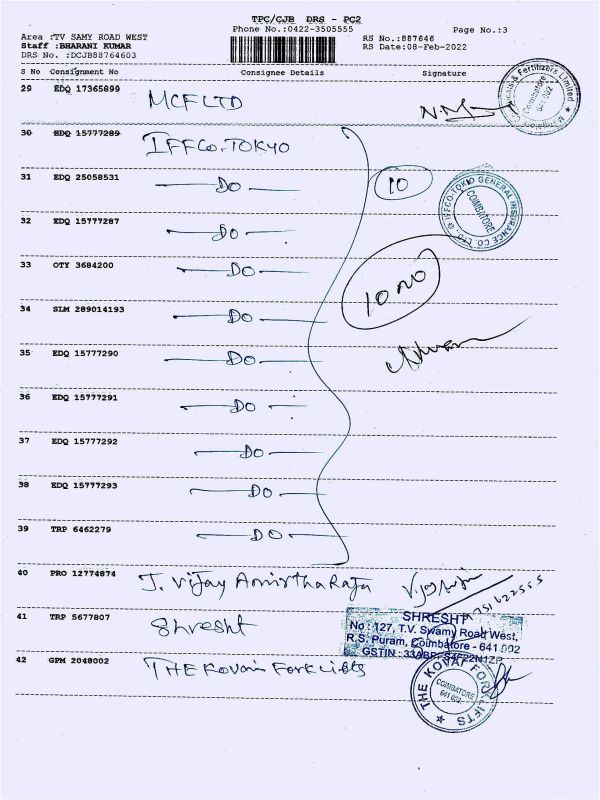 TPC/CJB DRS - PC2
Phone No.:0422-3505555
Page No.:3
Area :TV SAMY ROAD WEST
RS No.:887646
Staff :BHARANI KUMAR
RS Date:08-Feb-2022
DRS No. :DCJB88764603
S No Consignment No Consignee Details Signature
29 EDQ 17365899 MCFLTD
& Fertilizers Limited
Coimbatore
641 002
30 EDQ 15777289 IFFCO-TOKYO
31 EDQ 25058531 DO 10
IFFCO-TOKIO GENERAL INSURANCE CO. LTD.
COIMBATORE
32 EDQ 15777287 DO
33 OTY 3684200 DO
10 no
34 SLM 289014193 DO
35 EDQ 15777290 DO
36 EDQ 15777291 DO
37 EDQ 15777292 DO
38 EDQ 15777293 DO
39 TRP 6462279 DO
40 PRO 12774874 J. Vijay AmirthaRaja
41 TRP 5677807 Shresht
SHRESHT
No : 127, T.V. Swamy Road West,
R.S. Puram, Coimbatore - 641 002
GSTIN :
42 GPM 2048002 THE Kovai Forklifts
THE KOVAI FORKLIFTS
COIMBATORE
641 002